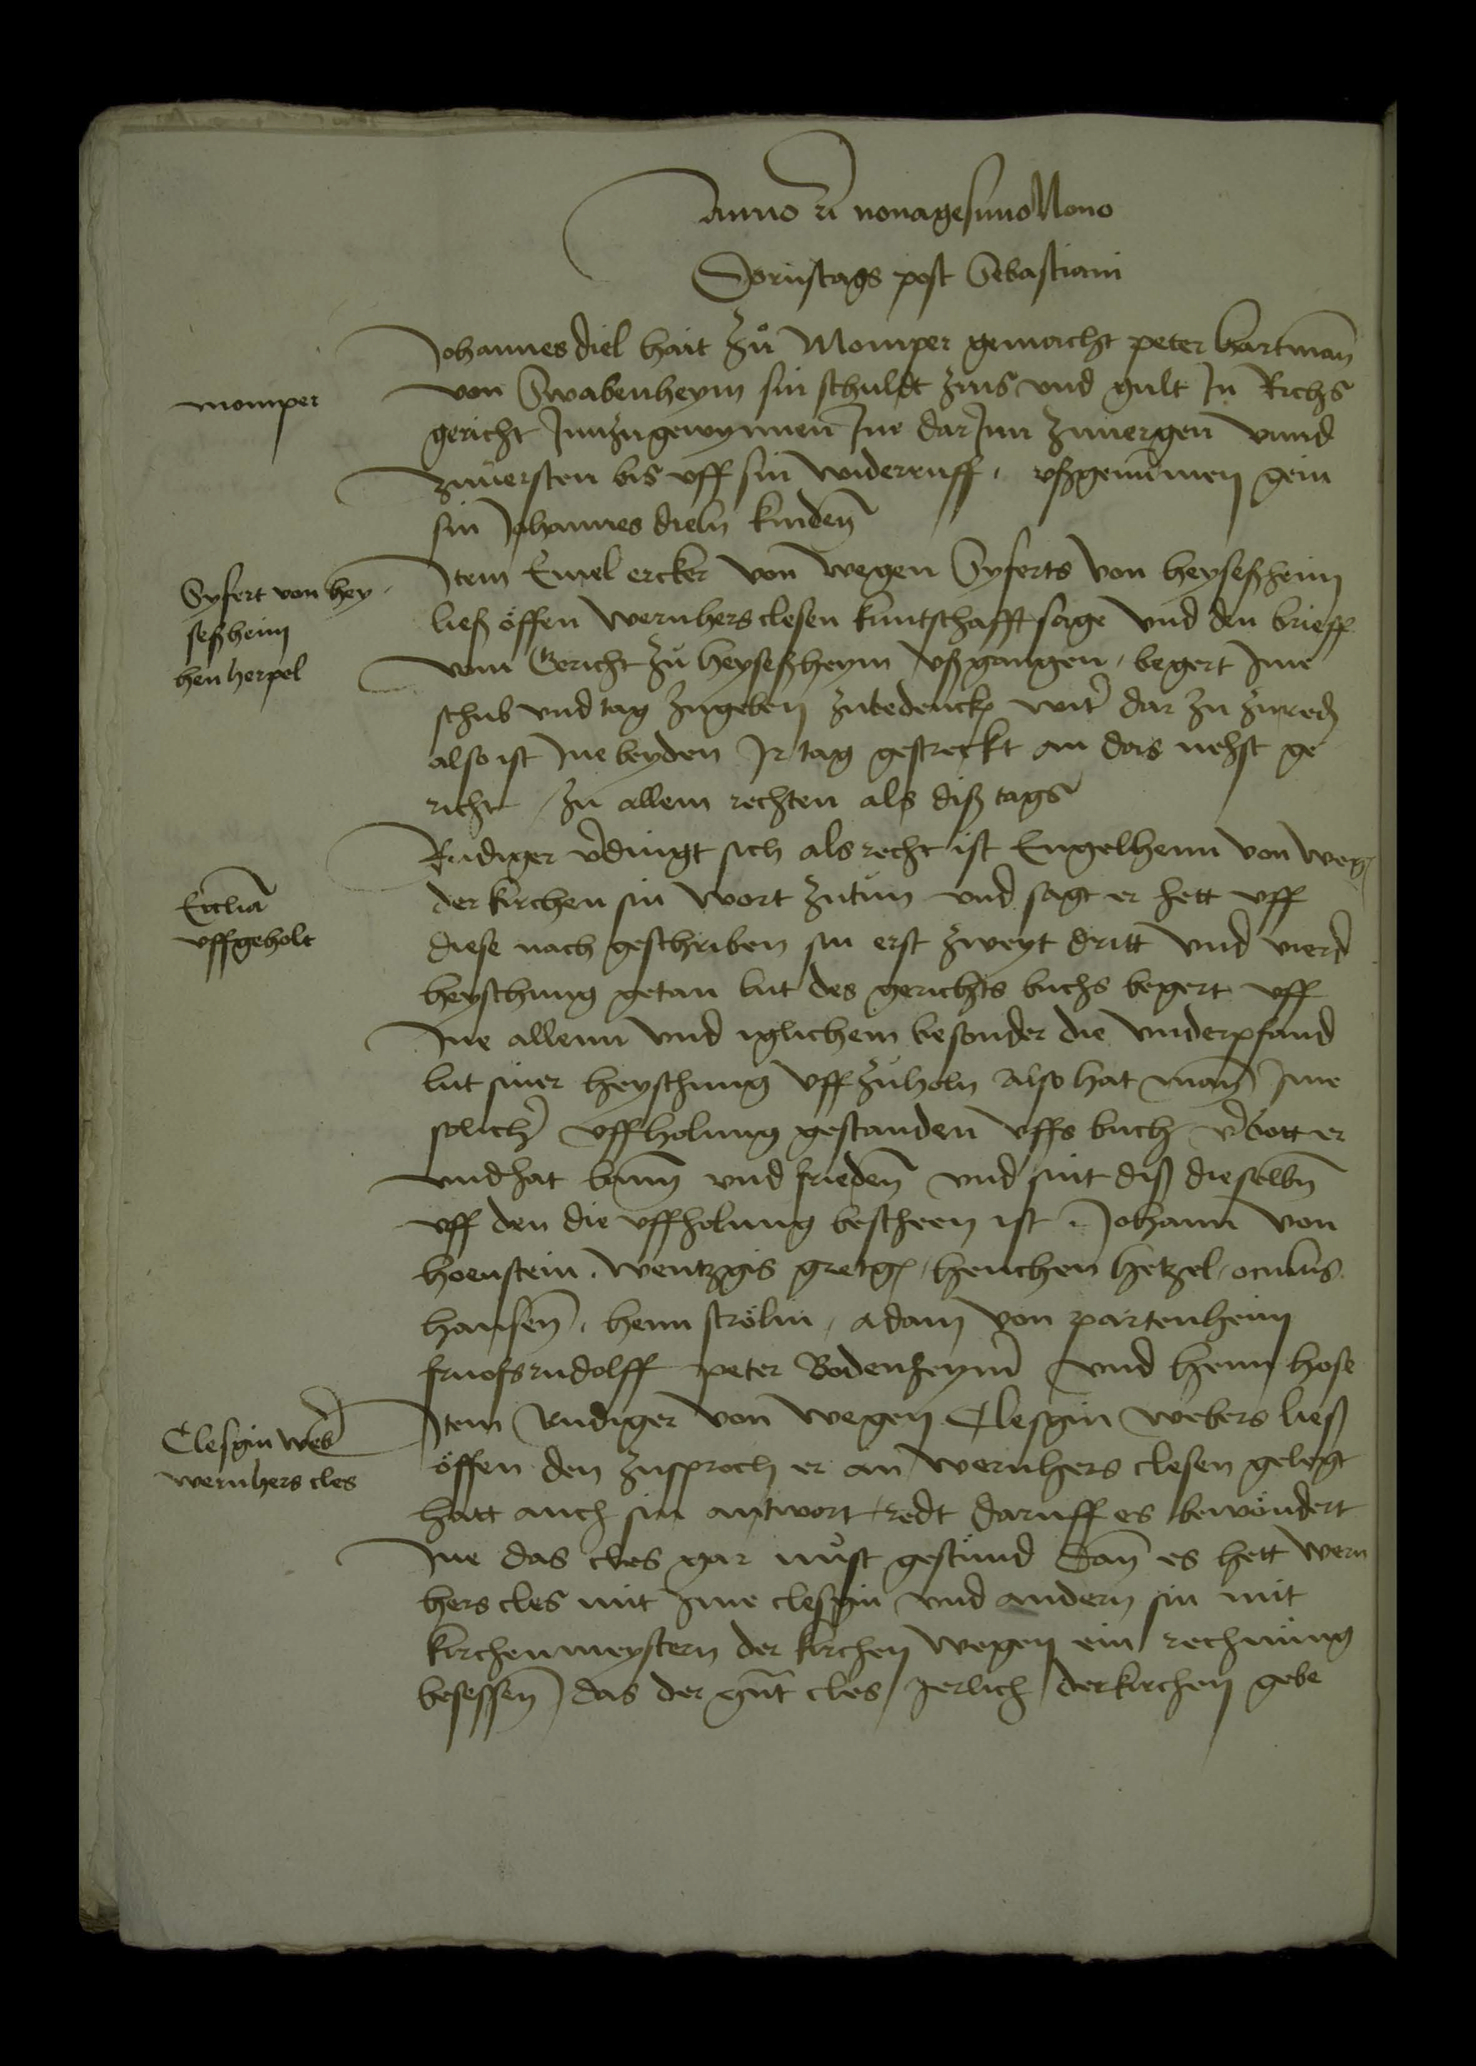 Anno etc nonagesimo Nono
Dornstags post Sebastiani
Johannes diel hait zů Momper gemacht peter hartman̄
momper
von Swabenheym sin schuldt zins vnd gult Jn Richs
gericht Jnnzugewynnen Jne dar Jnn zuuergen vnnd
zuuersten bis vff sin widerruff, vßgenūmen gein
sin Johannes dieln kinden̄
Syfert von hey-
seßheim
hen herpel
Jtem Emel ercker von wegen Syferts von heyseßheim
ließ öffen wernhers clesen kuntschafft sage vnd den brieff
vom Gericht zů heyseßheym vßgangen, begert Jme
schub vnd tag zugeben zubedenck witt' dar zu zureden
also ist Jne beyden Jr tag gestreckt an das nehst ge
richt zu allem rechten als diß tags
Ecclia
vffgeholt
Rudiger v'dingt sich als recht ist Engelhenn von weg
der kirchen sin wort zutun vnd sagt er hett vff
diese nach geschriben sin erst zweyt dritt vnd vierd
heyschung getan lut des gerichts buchs begert vff
Jne allenn vnd iglichem besonder die vnderpfand
lut siner heyschung vff zuholn also hat man̄ Jme
solich' vffholung gestanden vffs buch v'bott er
vnd hat bann̄ vnd frieden̄ vnd sint diß dieselbn̄
vff den die vffholung bescheen ist, Johann von
hoenstein, wentzgis gretg, henchen hetzel, oculus
hansen̄, henn strölin, adam von partenheim
fruofsrudolff peter Bodenheym' vnd henn hose
Clesgin web'
wernhers cles
Jtem Rudiger von wegen Clesgin webers ließ
öffen den zusproch er an wernhers clesen gelegt
hatt auch sin antwort, redt daruff es bewöndert
Jne das cles gar nust gestůnd Dan̄ es hett wern
hers cles mit Jme clesgin vnd andern sin mit
kirchenmeystern der kirchen wegen ein rechnung
besessen̄ das der gnt cles Jerlich der kirchen gebe